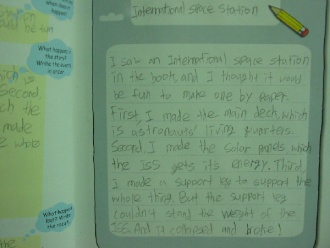 International Space Station
I saw an International space station
in the book, and I thought it would
be fun to make one by paper.
First, I made the main deck, which
is astronauts' living quarters.
Second, I made the solar panels which
the ISS gets it's energy. Third,
I made a support leg to support the
whole thing. But the support leg
couldn't stand the weight of the
ISS. And it collapsed and broke!
What happened in
the story?
Write the events
in order.
What happened
last? Write
the result.
Second,
made
whole